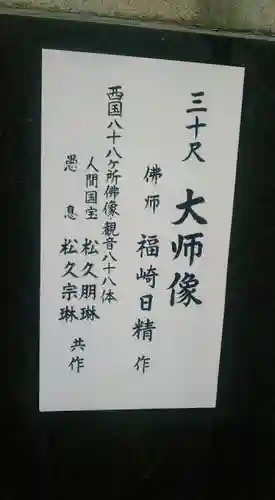 三十尺　大师像
佛师　福崎日精　作
西国八十八ヶ所佛像観音八十八体
人間国宝　松久朋琳
愚息　松久宗琳　共作